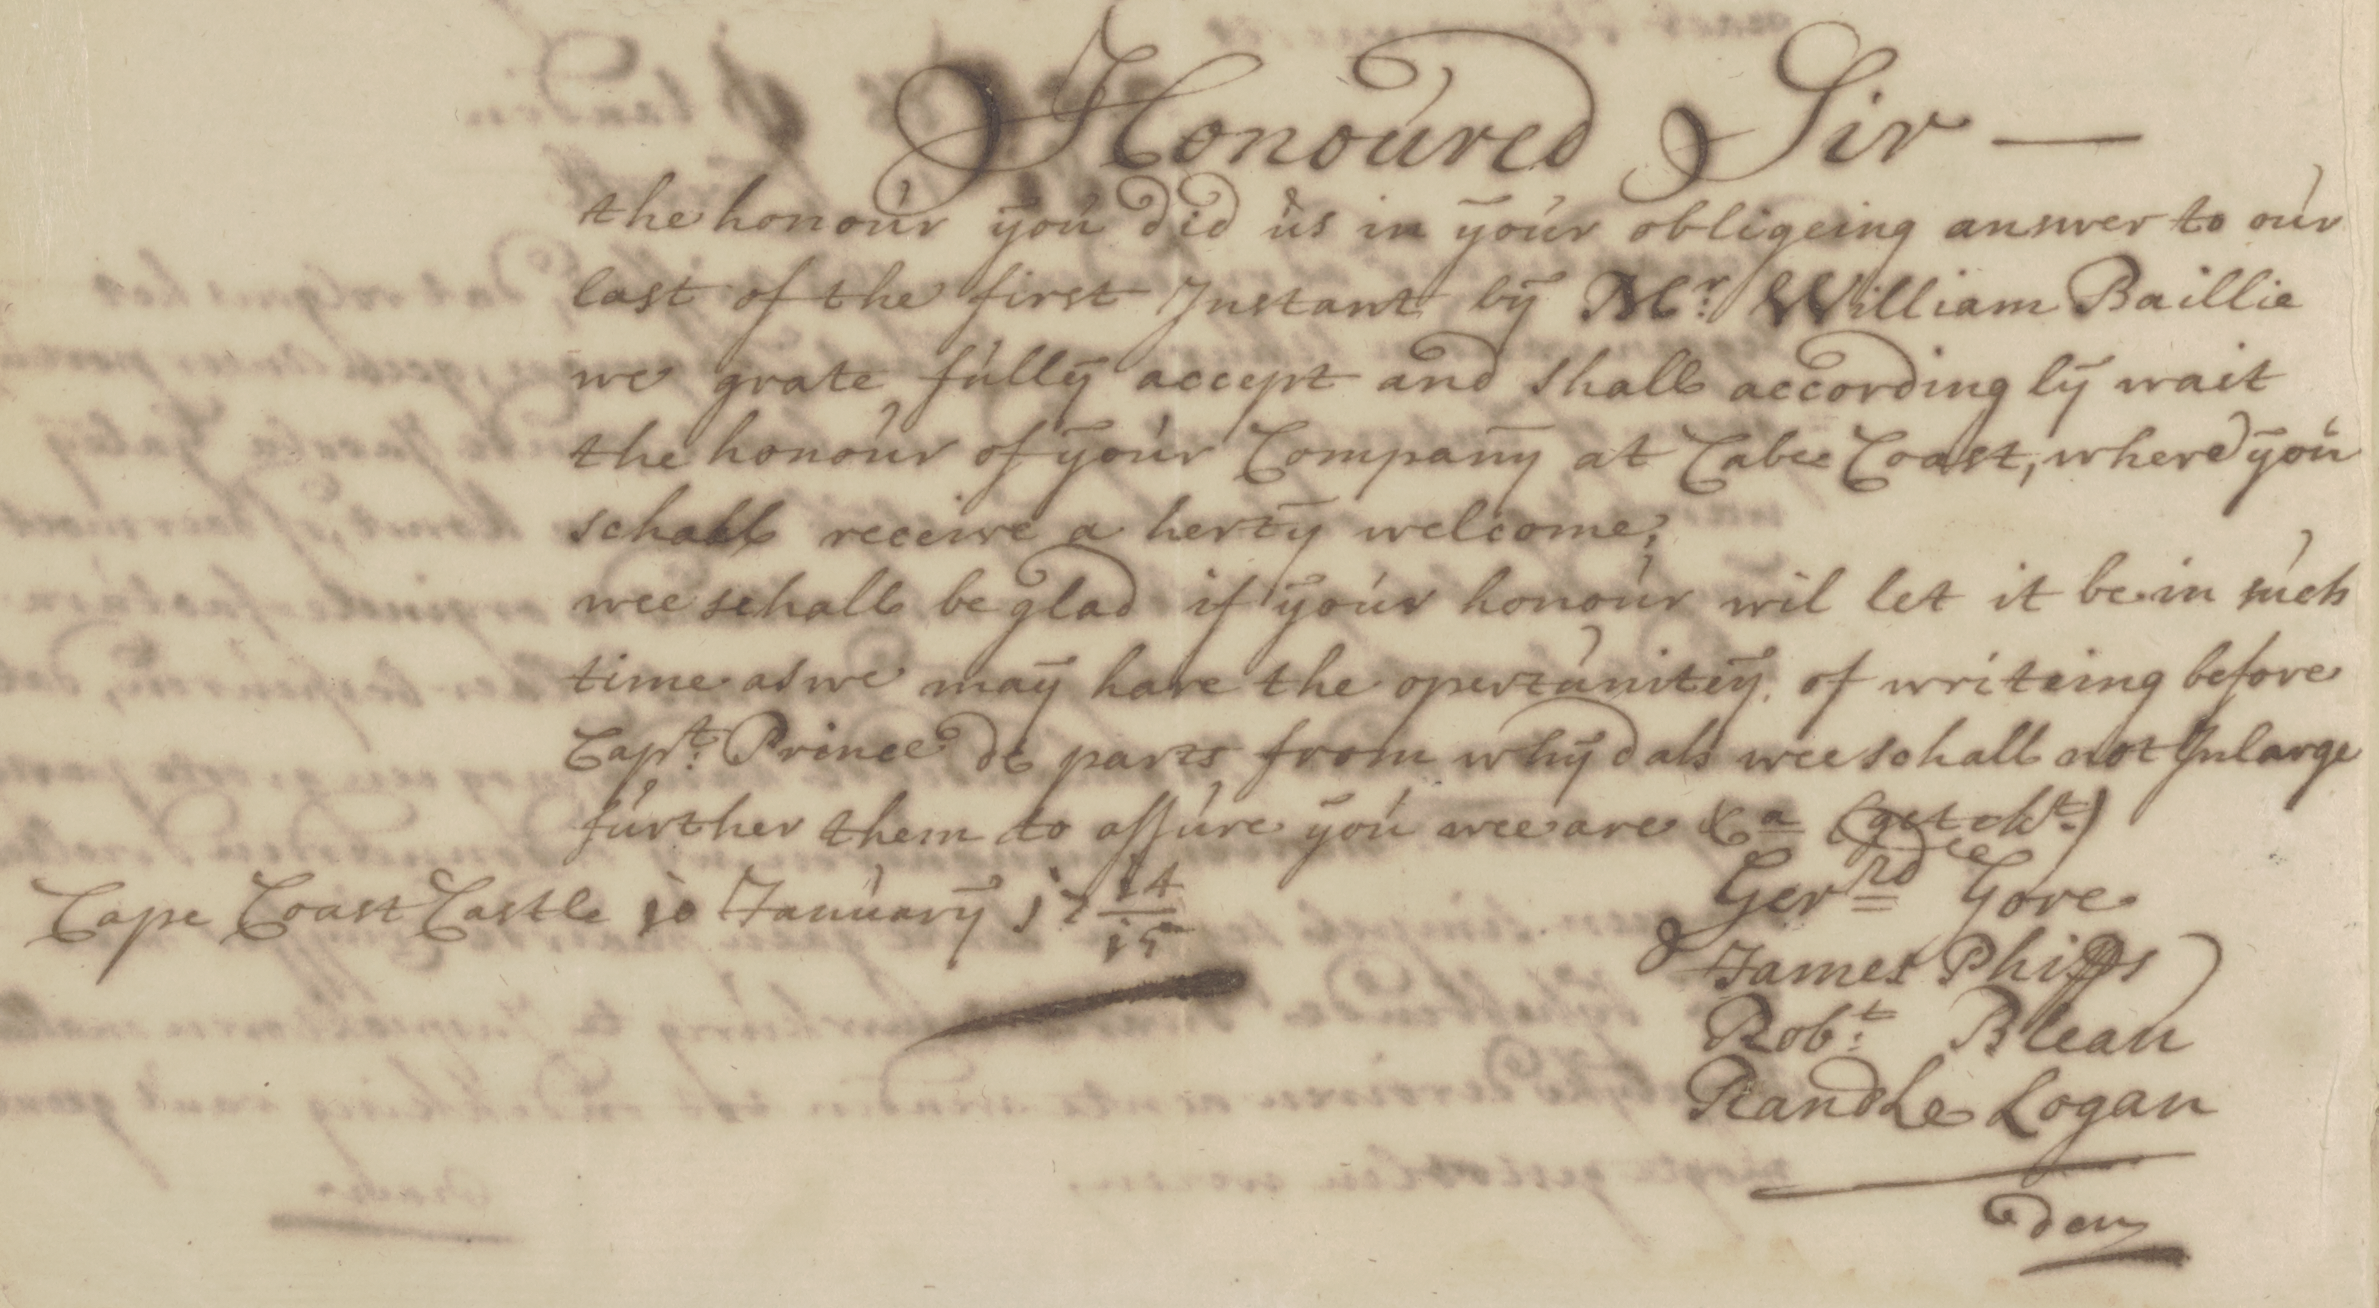 Honoured Sir —
the honour ÿou did us in ÿour obligeing answer to our
last of the first Instant bÿ Mr: William Baillie
we grate fullÿ accept and shall according lÿ wait
the honour of ÿour Companÿ at Cabee Coast, where ÿou
schall receive a hertÿ welcome,
wee schall be glad if ÿour honour wil let it be in such
time as we maÿ have the opertuniteÿ of writeing before
Capt: Prince de parts from whÿdah wee schall not Inlarge
further them to assure ÿou wee are &a (getekt:)
Cape Coast Castle jo Januarÿ j7 14/15
Gerrd Gore
& James Phipps
Robt: Blean
Randle Logan
den